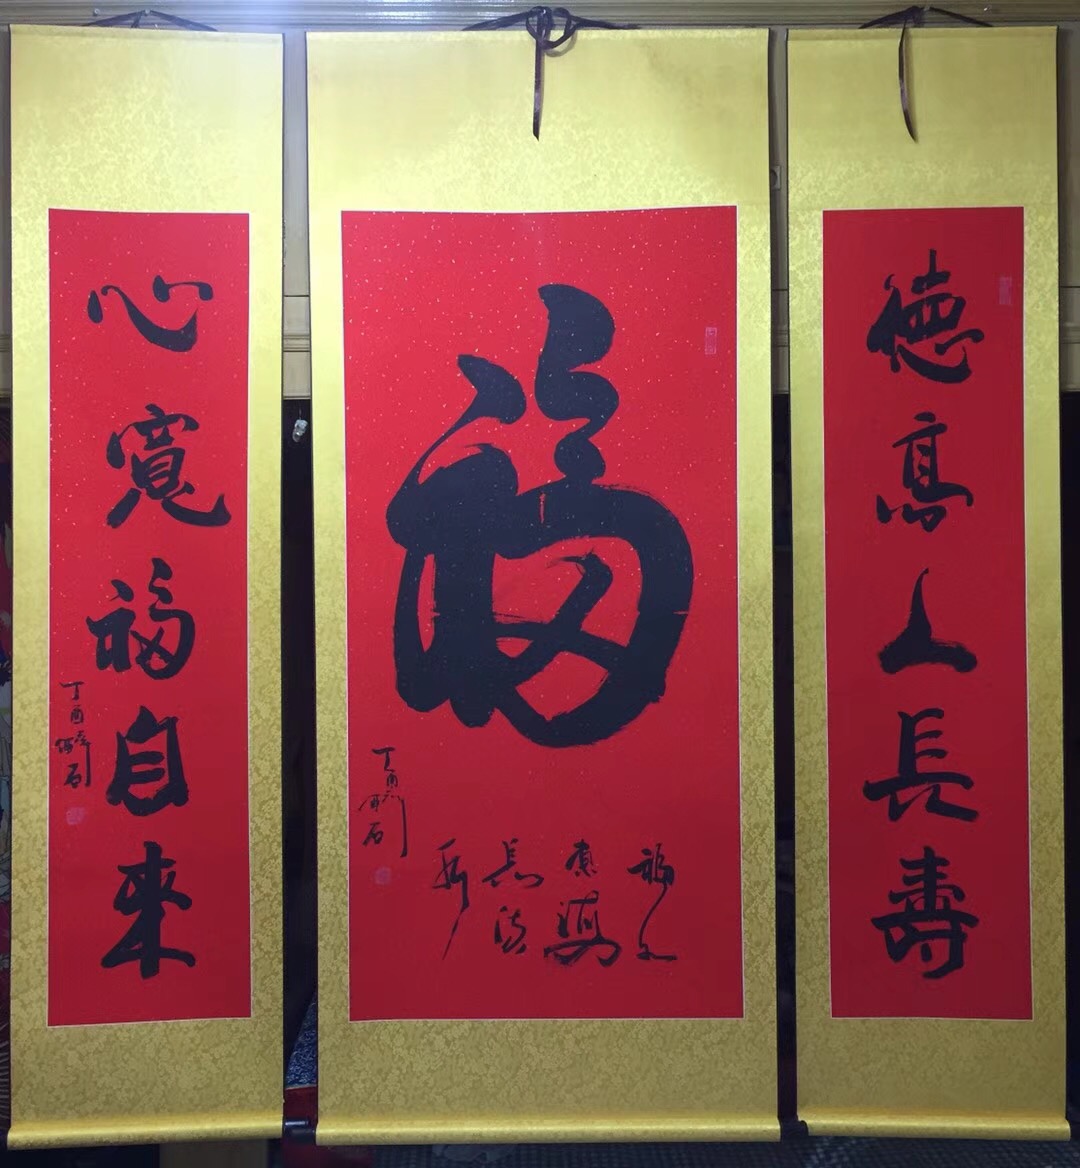 德高人長壽
福
福如
東海
長流
水
丁酉
石
心寬福自來
丁酉
石